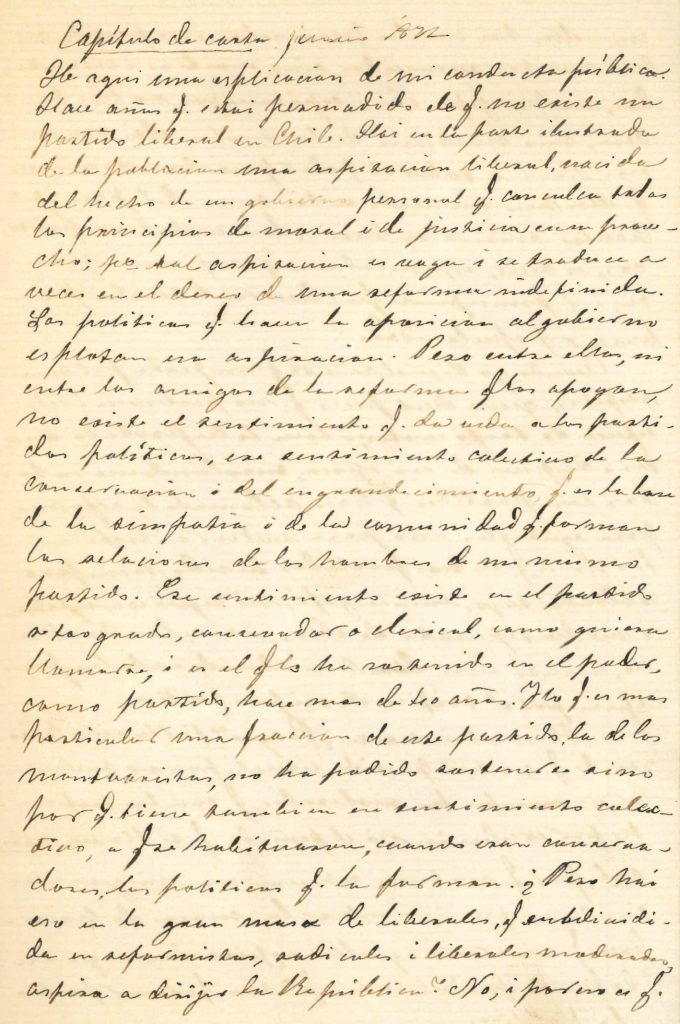 Capítulo de carta junio 1872
He aqui una esplicacion de mi conducta pública.
Hace años q. estoi persuadido de q. no existe un
partido liberal en Chile. Hai en la parte ilustrada
de la poblacion una aspiracion liberal, nacida
del hecho de un gobierno personal q. conculca todos
los principios de moral i de justicia en su prove-
cho; po. tal aspiracion es vaga i se traduce a
veces en el deseo de una reforma indefinida.
Los politicos q. hacen la oposicion al gobierno
esplotan esa aspiracion. Pero entre ellos, ni
entre los amigos de la reforma q. los apoyan,
no existe el sentimiento q. da vida a los parti-
dos políticos, ese sentimiento colectivo de la
conservacion i del engrandecimiento, q. es la base
de la simpatia i de la comunidad q. forman
las relaciones de los hombres de un mismo
partido. Ese sentimiento existe en el partido
retrogrado, conservador o clerical, como quiera
llamarse, i es el q. lo ha sostenido en el poder,
como partido, hace mas de 40 años. I lo q. es mas
particular una fraccion de este partido, la de los
monttvaristas, no ha podido sostenerse sino
por q. tiene tambien ese sentimiento colec-
tivo, a q. se habituaron, cuando eran conserva-
dores, los politicos q. la forman. ¿Pero hai
eso en la gran masa de liberales, q. subdividi-
da en reformistas, radicales i liberales moderados,
aspira a dirijir la República? No, i por eso es q.